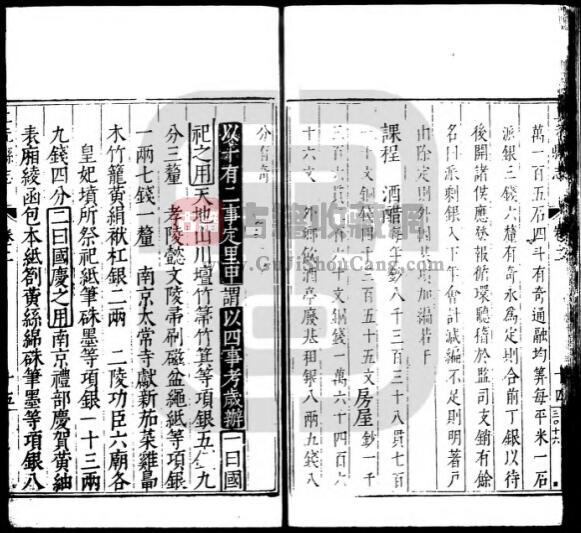 萬一百五石四斗有奇通融均筭每平米一石
派銀三錢六釐有奇永為定則合前丁銀以待
後開諸侯應登報循環聽稽於監司支銷有餘
名曰派剩銀入下年會計減編不足則明著戶
由除定則外
課程 酒醋每年鈔八千三百三十八貫七百
二十文銅錢四千三百五十五文房屋鈔一千
文銅錢一萬六千四百六
十六文外鄉飲酒亭廢基租銀八兩九錢八
分有奇
以下有二事定里甲謂以四事考歲辦一曰國
祀之用天地山川壇竹箒竹筐等項銀五 九
分三釐 孝陵懿文陵帚刷磁盆繩紙等項銀
一兩七錢一釐 南京太常寺獻新茄菜雞鼠
木竹籠黃絹袱杠銀二兩 二陵功臣六廟各
皇妃墳所祭祀紙筆硃墨等項銀一十三兩
九錢四分二曰國慶之用南京禮部慶賀黃紬
表廂綾函包本紙劄黃絲綿硃筆墨等項銀八
元縣志
卷二
十五
卷二
十四
三〇十六
古籍收藏网
www.GuJiShouCang.Com